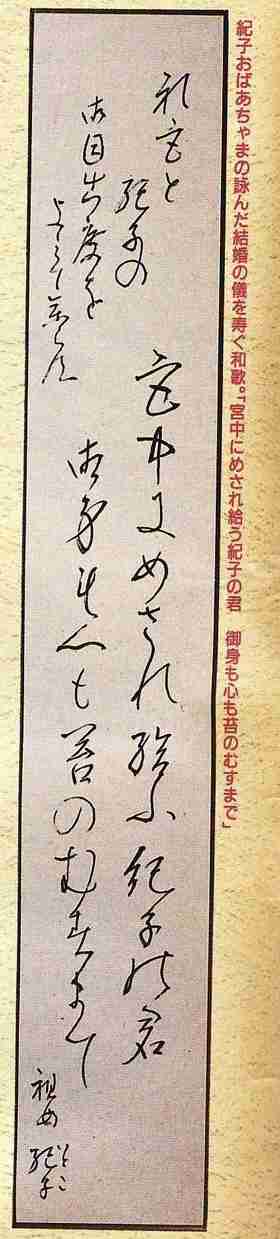 紀子おばあちゃまの詠んだ結婚の儀を寿ぐ和歌。「宮中にめされ給う紀子の君　御身も心も苔のむすまで」
礼宮と
紀子の
御目出度を
宮中にめされ給ふ紀子の君
御身も心も苔のむすまで
祖母
紀子